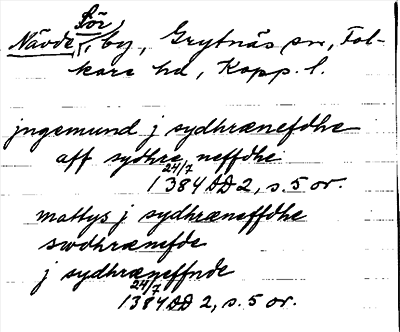 Sör
Nävde, by, Grytnäs sn, Fol-
kare hd, Kopp. l.
jngemund j sydhrænefdhe
aff sydhre neffdhe
24/7 1384 DD 2, s. 5 or.
mattys j sydhræneffdhe
swdhrænefde
j sydhræneffnde
24/7 1384 DD 2, s. 5 or.